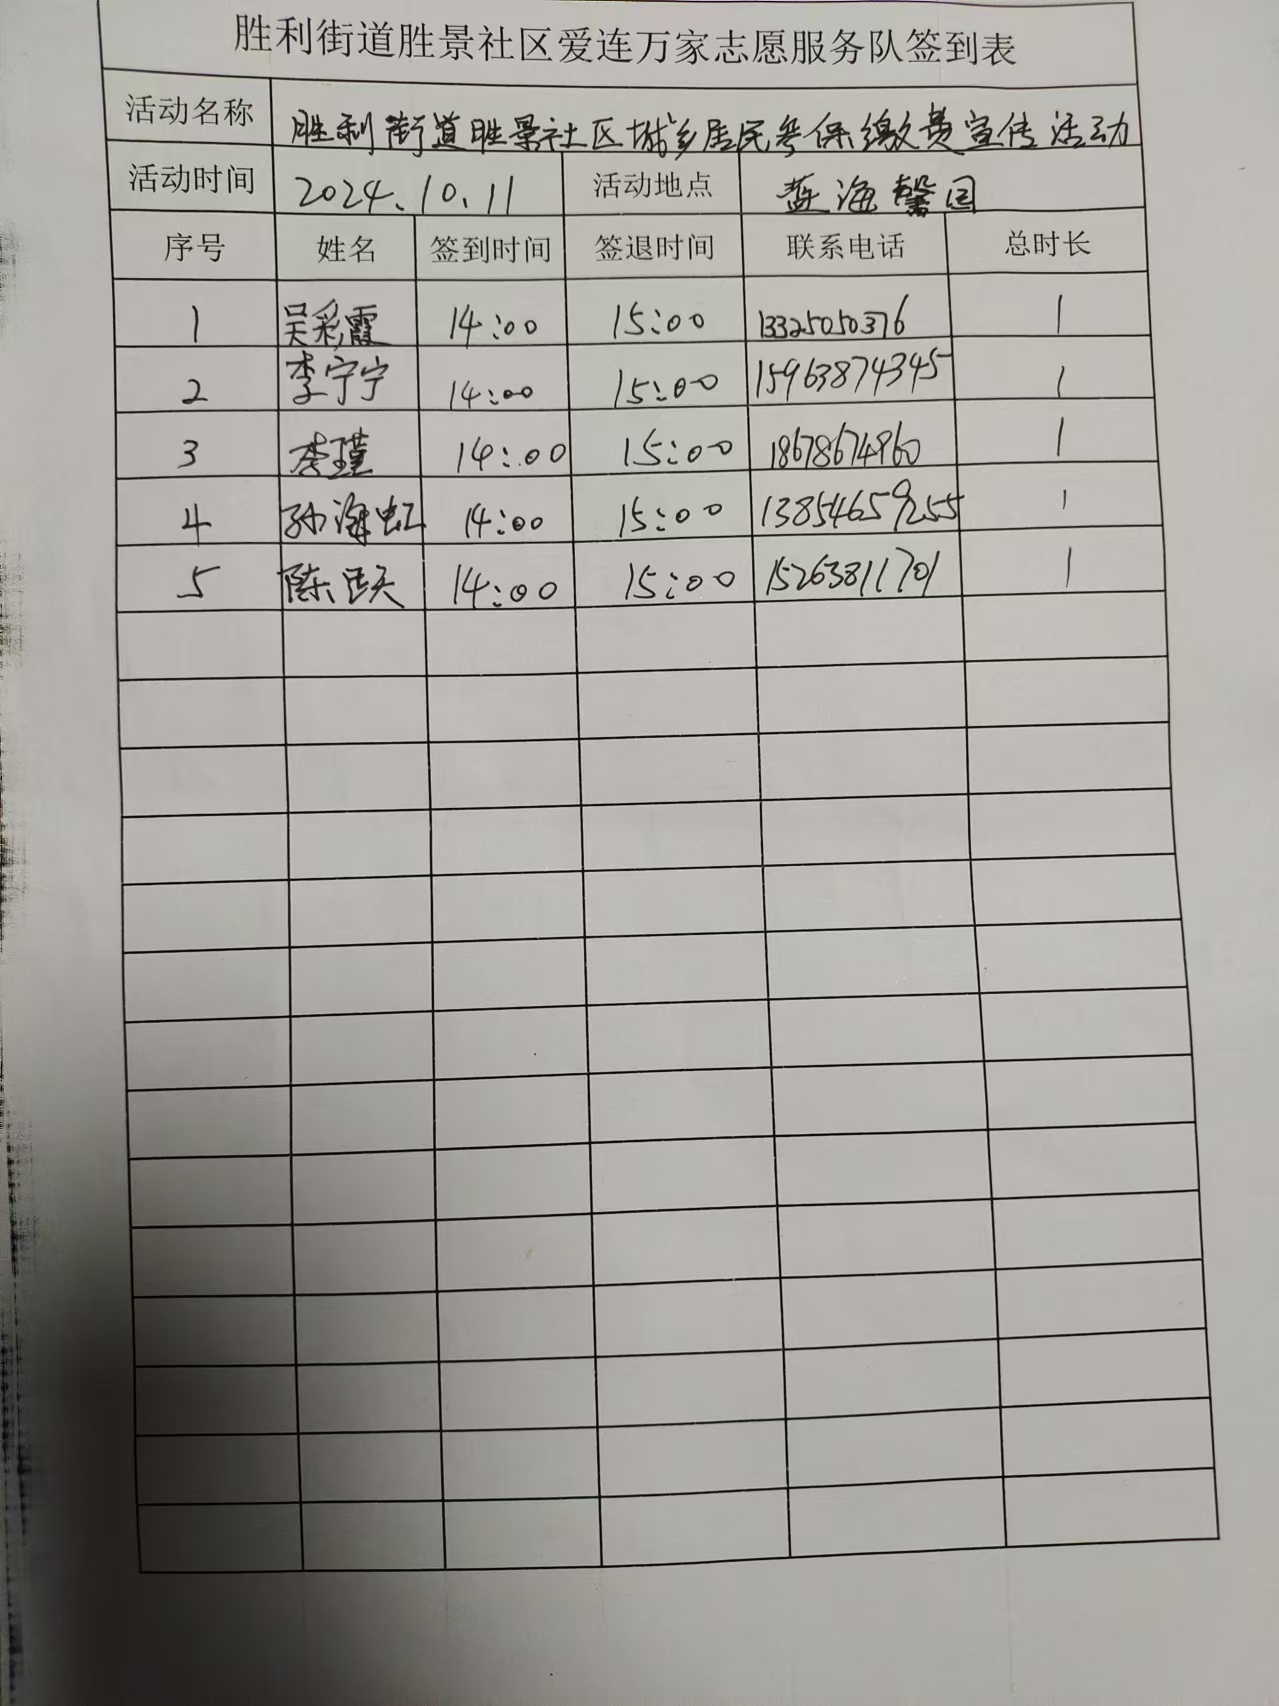 胜利街道胜景社区爱连万家志愿服务队签到表
活动名称 胜利街道胜景社区城乡居民参保缴费宣传活动
活动时间 2024.10.11 活动地点 蓝海馨园
序号 姓名 签到时间 签退时间 联系电话 总时长
1 吴彩霞 14:00 15:00 13325050376 1
2 李宁宁 14:00 15:00 15963874345 1
3 李瑾 14:00 15:00 18678674960 1
4 孙海虹 14:00 15:00 13854659255 1
5 陈 14:00 15:00 15263811701 1